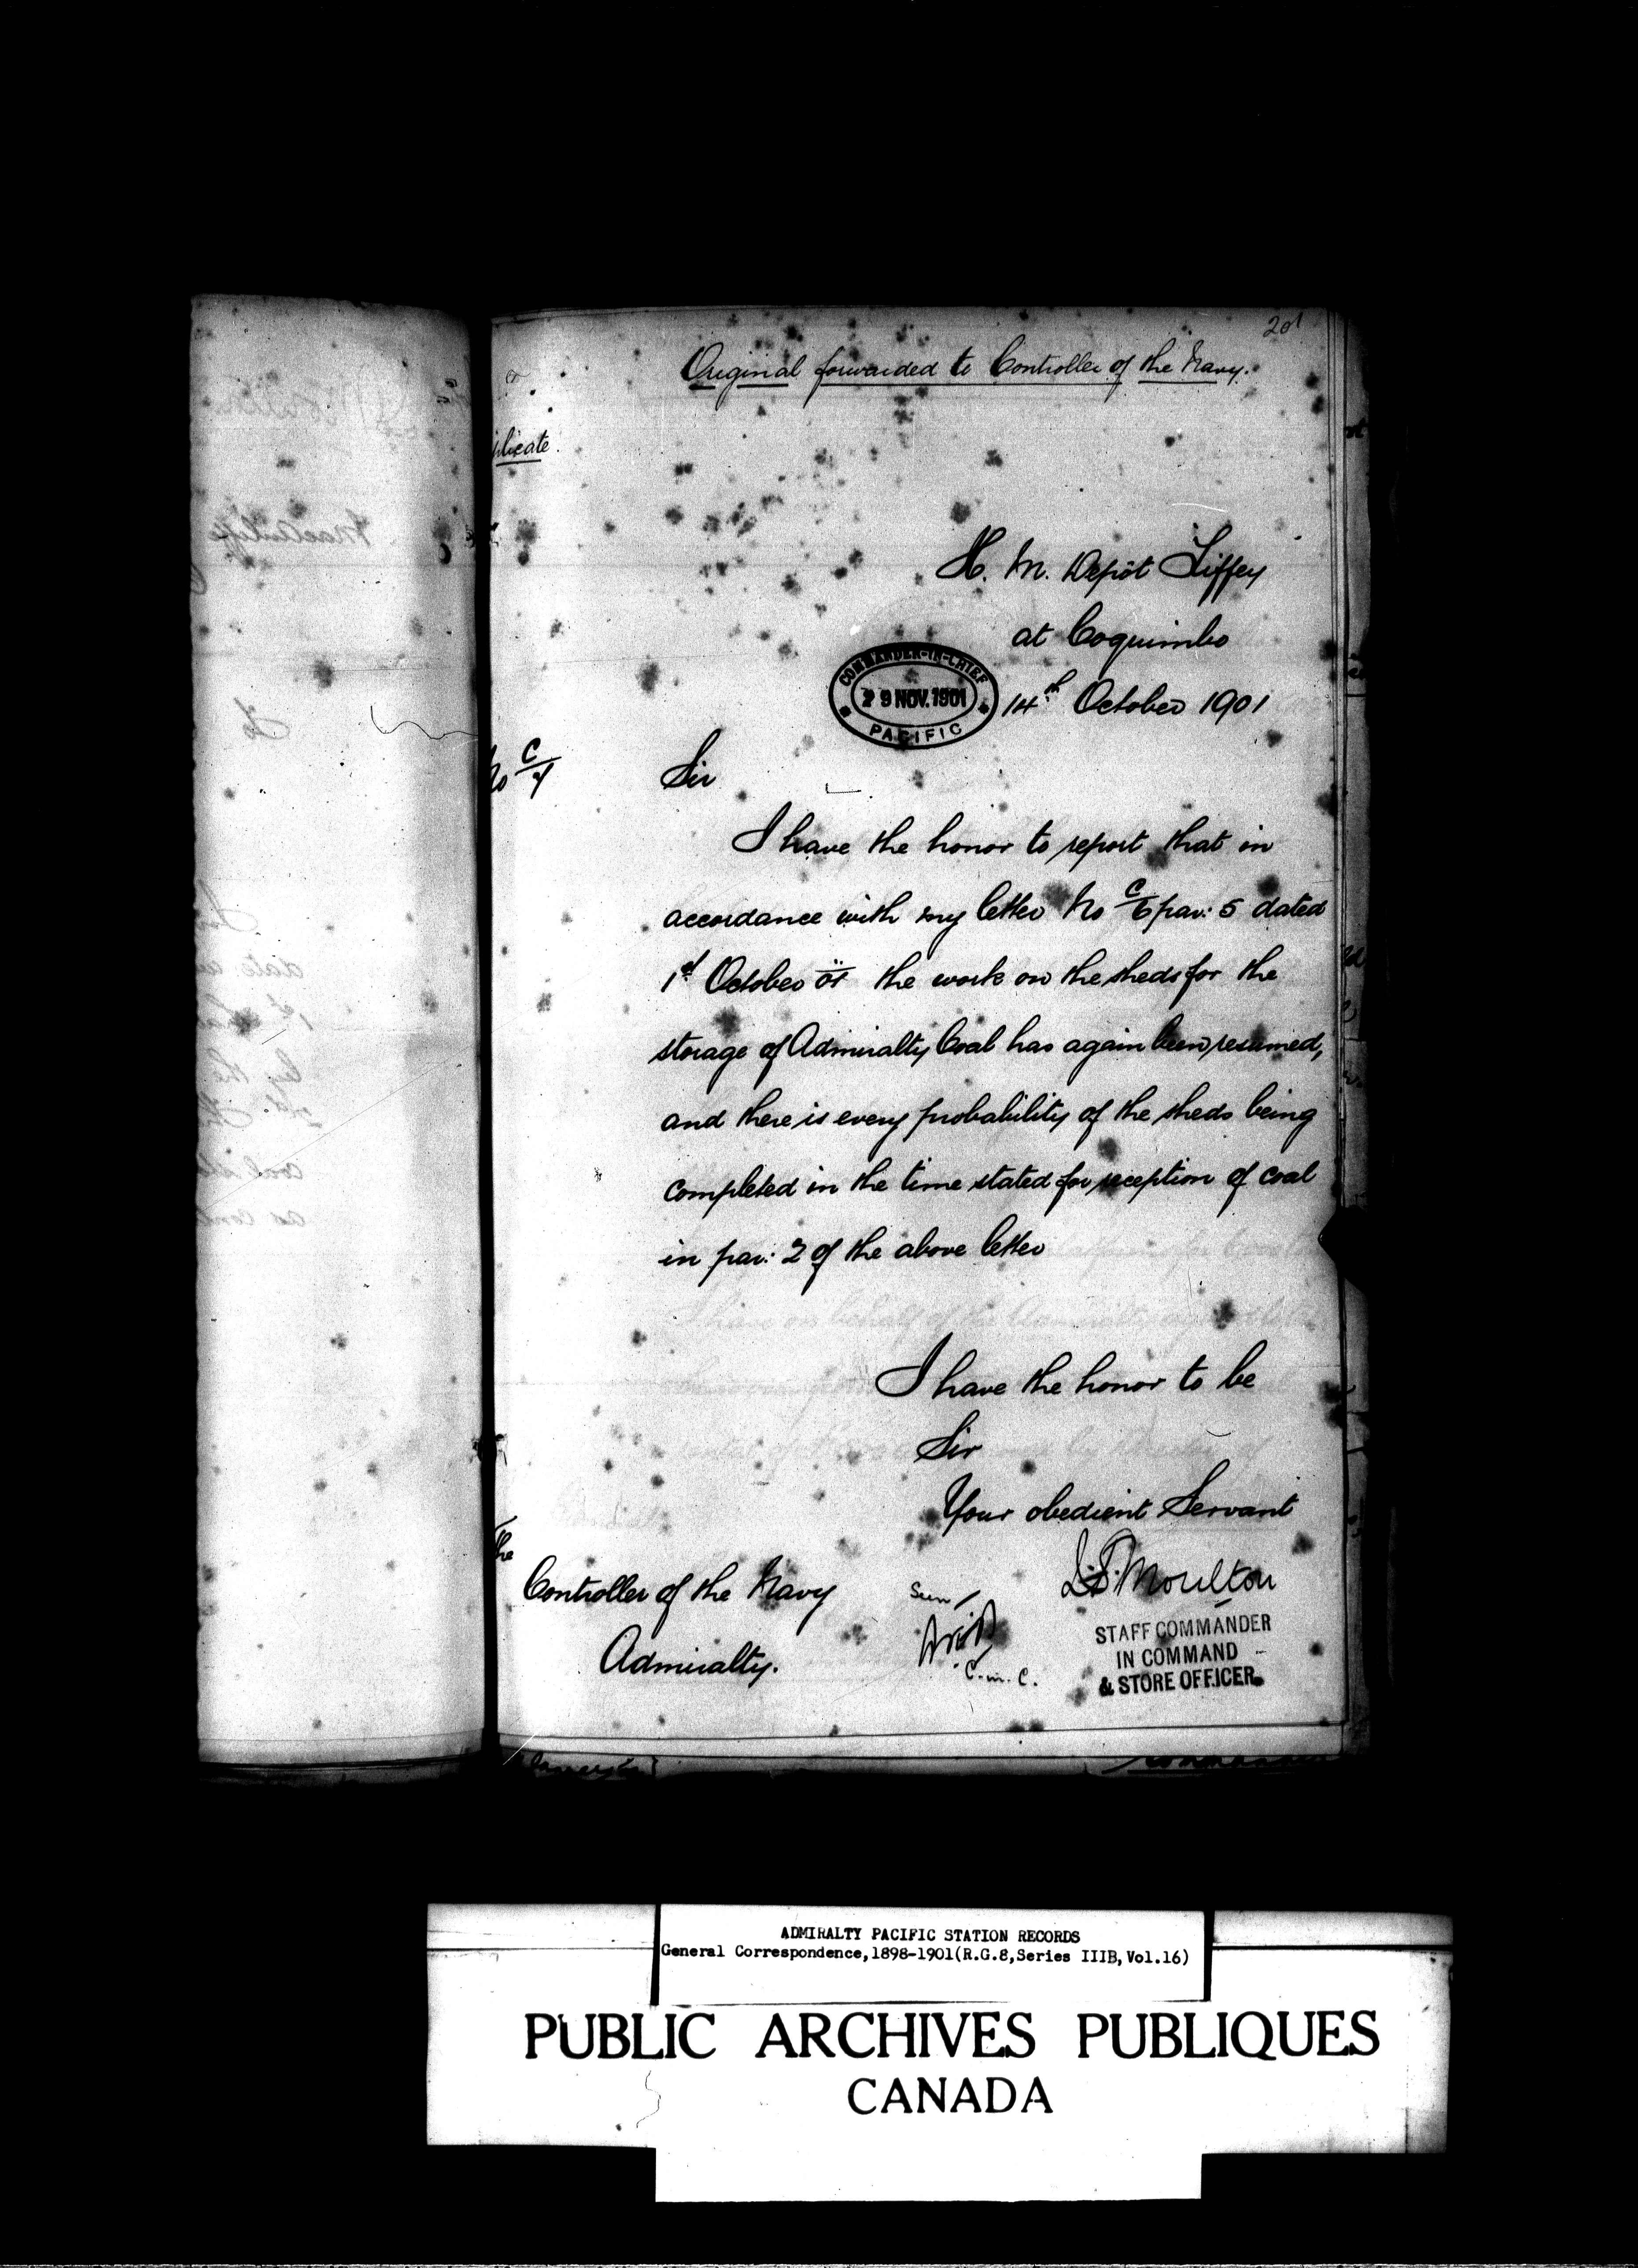 201
Original forwarded to Controller of the Navy.
plicate.
H. M. Depôt Liffey
at Coquimbo
COMMANDER-IN-CHIEF
29 NOV. 1901
PACIFIC
14th October 1901
No C/7
Sir
I have the honor to report that in
accordance with my letter No C/6 par: 5 dated
1st October 01 the work on the sheds for the
storage of Admiralty Coal has again been resumed,
and there is every probability of the sheds being
completed in the time stated for reception of coal
in par: 2 of the above letter
I have the honor to be
Sir
Your obedient Servant
Moulton
STAFF COMMANDER
IN COMMAND
& STORE OFFICER.
The
Controller of the Navy
Admiralty.
Seen
C.in.C.
ADMIRALTY PACIFIC STATION RECORDS
General Correspondence,1898-1901(R.G.8,Series IIIB,Vol.16)
PUBLIC ARCHIVES PUBLIQUES
CANADA